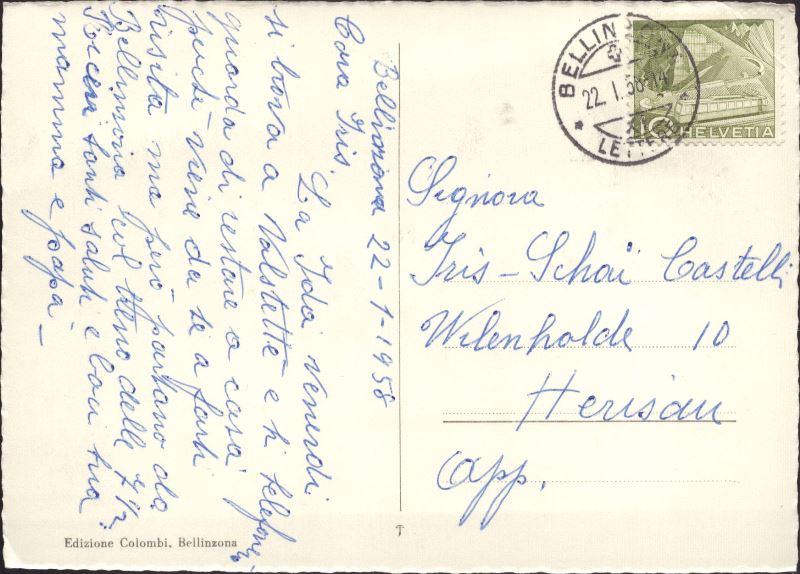 Bellinzona 22-1-1958
Cara Iris,
La Ida venerdì
si trova a Valstette e ti telefona,
guarda di restare a casa
perché viene da te a farti
visita ma però partiano da
Bellinzona col treno delle 7 1/2.
tanti saluti e baci tua
mamma e papà –
BELLINZONA
22.1.58-14
LETTERE
10
HELVETIA
Signora
Iris-Schai Castelli
Wilenholde 10
Herisau
App.
Edizione Colombi, Bellinzona